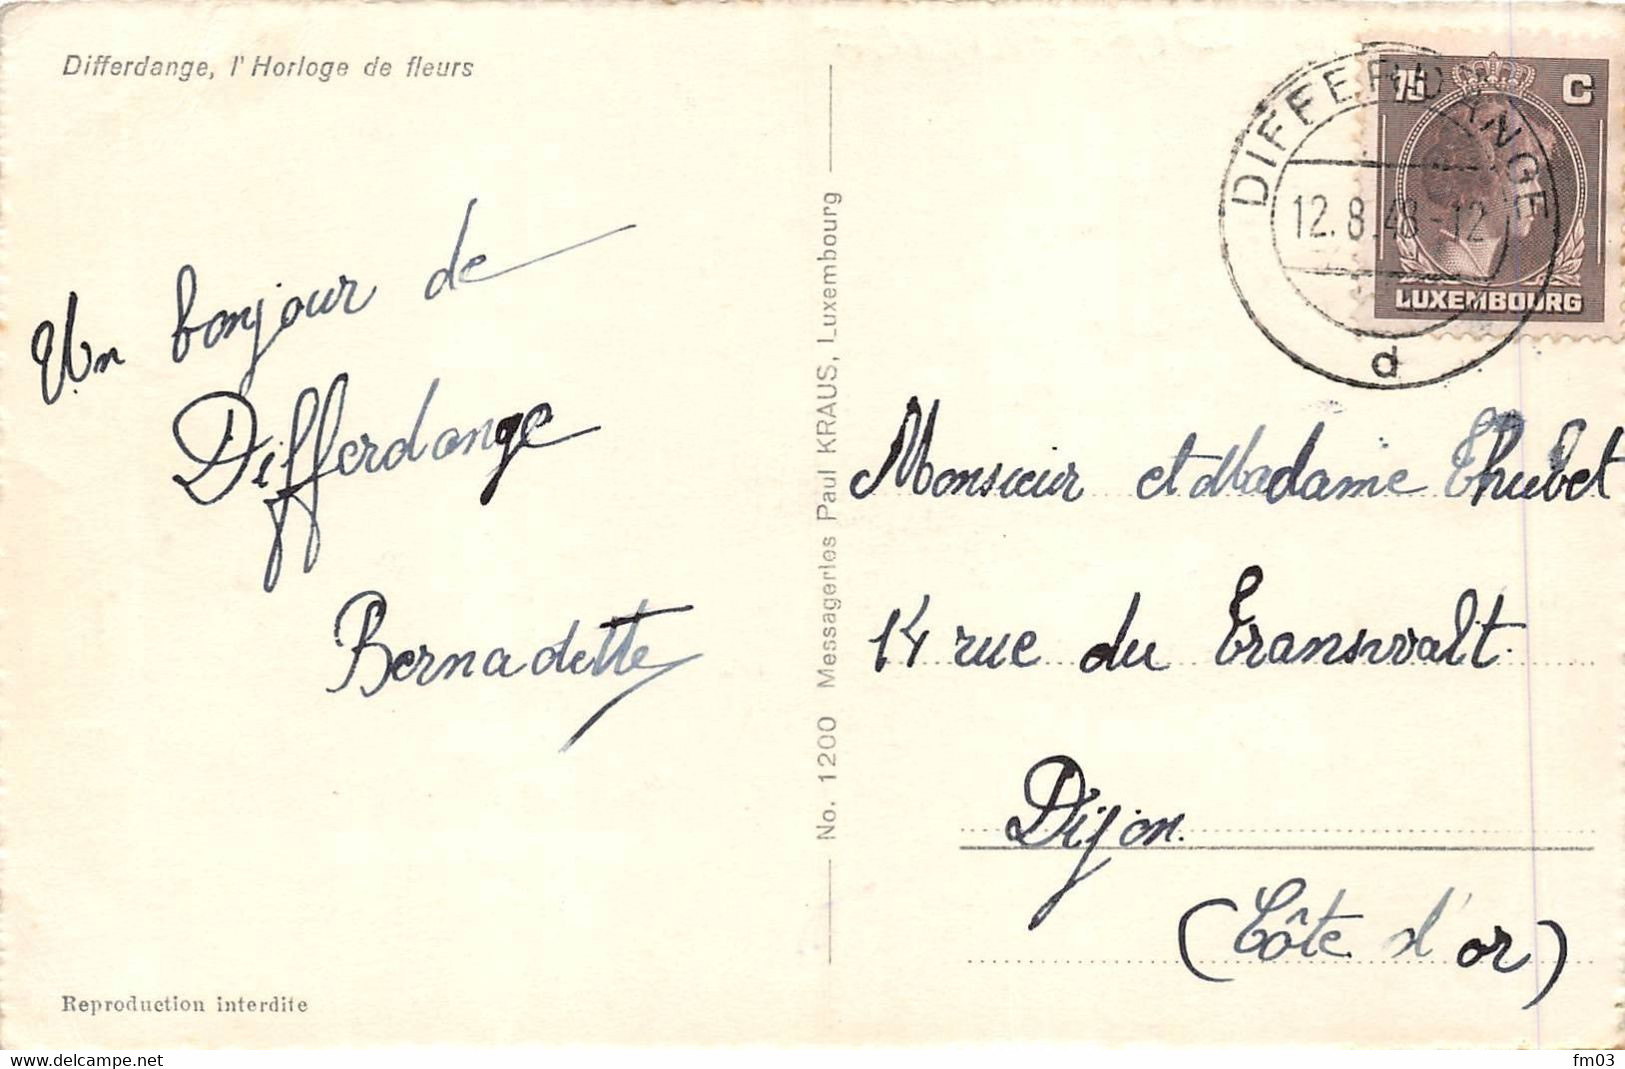 Differdange, l'Horloge de fleurs
Un bonjour de
Differdange
Bernadette
Reproduction interdite
No. 1200 Messageries Paul KRAUS, Luxembourg
75 C
LUXEMBOURG
DIFFERDANGE
12.8.48-12
d
Monsieur et Madame Thubet
14 rue du Transvalt
Dijon.
(Côte d'or)
www.delcampe.net
fm03